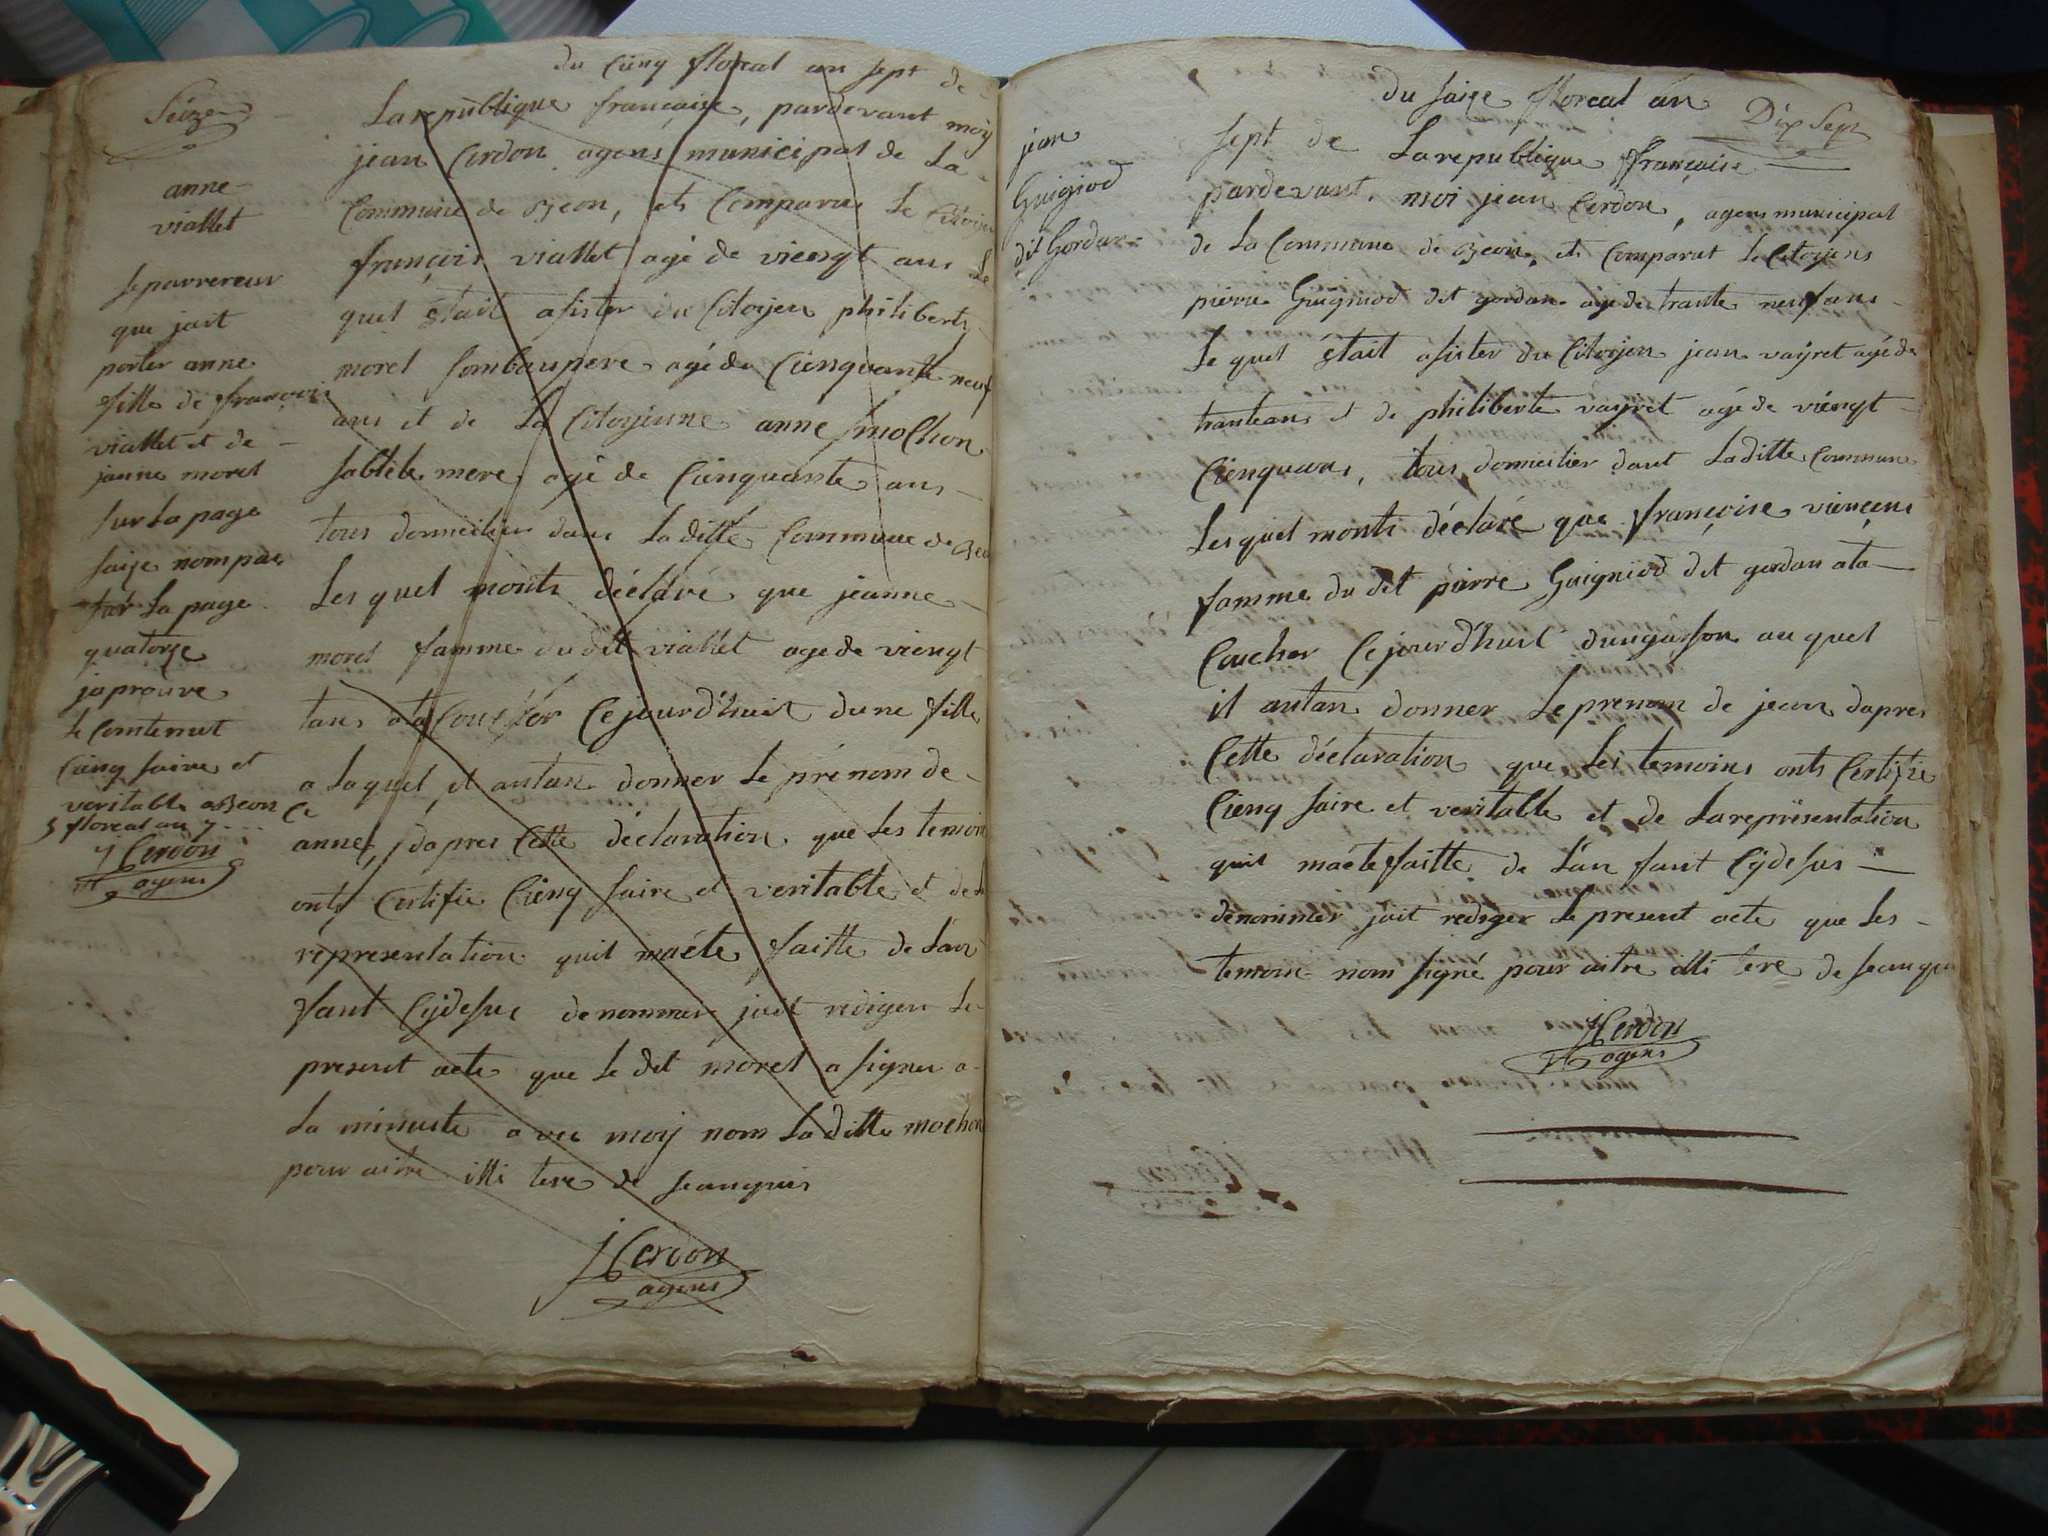 Seize
anne
viallet
se parrereur
que jait
porter anne
fille de françois
viallet et de
janne morel
sur La page
saize nom pas
sur La page
quatorze
japrouve
le Contenut
Cienq saire et
veritable a Beon Ce
5 floreal an 7
J Cerdon
agens
du Cienq floreal an sept de
La republique francaise, pardevant moy
jean Cerdon agens municipal de La
Commune de Beon, et Comparu Le Citoyen
françois viallet agé de viengt ans Le
quel était asister du Citoyen philibert
morel sombaupere agé de Cienquante neuf
ans et de La Citoyenne anne mochon
sabele mere agé de Cienquante ans
tous domicilier dans La ditte Commune de Beon
Les quel monts déclaré que jeanne
morel famme du dit viallet age de viengt
tans ata Coucher Cejourd'huit dune fille
a Laquel il autan donner Le prénom de
anne, dapres Cette déclaration que Les temoin
onts Certifie Cienq saire et veritable et de La
répresentation quil maéte faitte de Lan
fant Cydesus denommer jait rediger Le
present acte que Le dit morel a signer a
La minuste avec moy nom La ditte mochon
pour aitre illi tere de seanquis
J Cerdon
agens
Dix Sept
jean
Guigniod
dit Gordan
du saize floreal an
sept de La republique française
pardevant, moi jean Cerdon, agens municipal
de La Commune de Beon, et Comparut Le Citoyens
pierre Guigniod dit gordan age de trante neuf ans
Le quel était asister du Citoyen jean vayret agé de
tranteans et de philiberte vayret agé de viengt
Cienquans, tous domicilier dant Laditte Commune
Les quel monts déclaré que françoise viencens
famme du dit pierre Guigniod dit gordan ata
Coucher Cejourd'huit dungarson au quel
il autan donner Le prenom de jean dapres
Cette déclaration que Les temoins onts Certifie
Cienq saire et veritable et de La représentation
quil maéte faitte de Lan fant Cydesus
denommer jait rediger Le present acte que Les
temoin nom signé pour aitre illi tere de seanqui
J Cerdon
agens